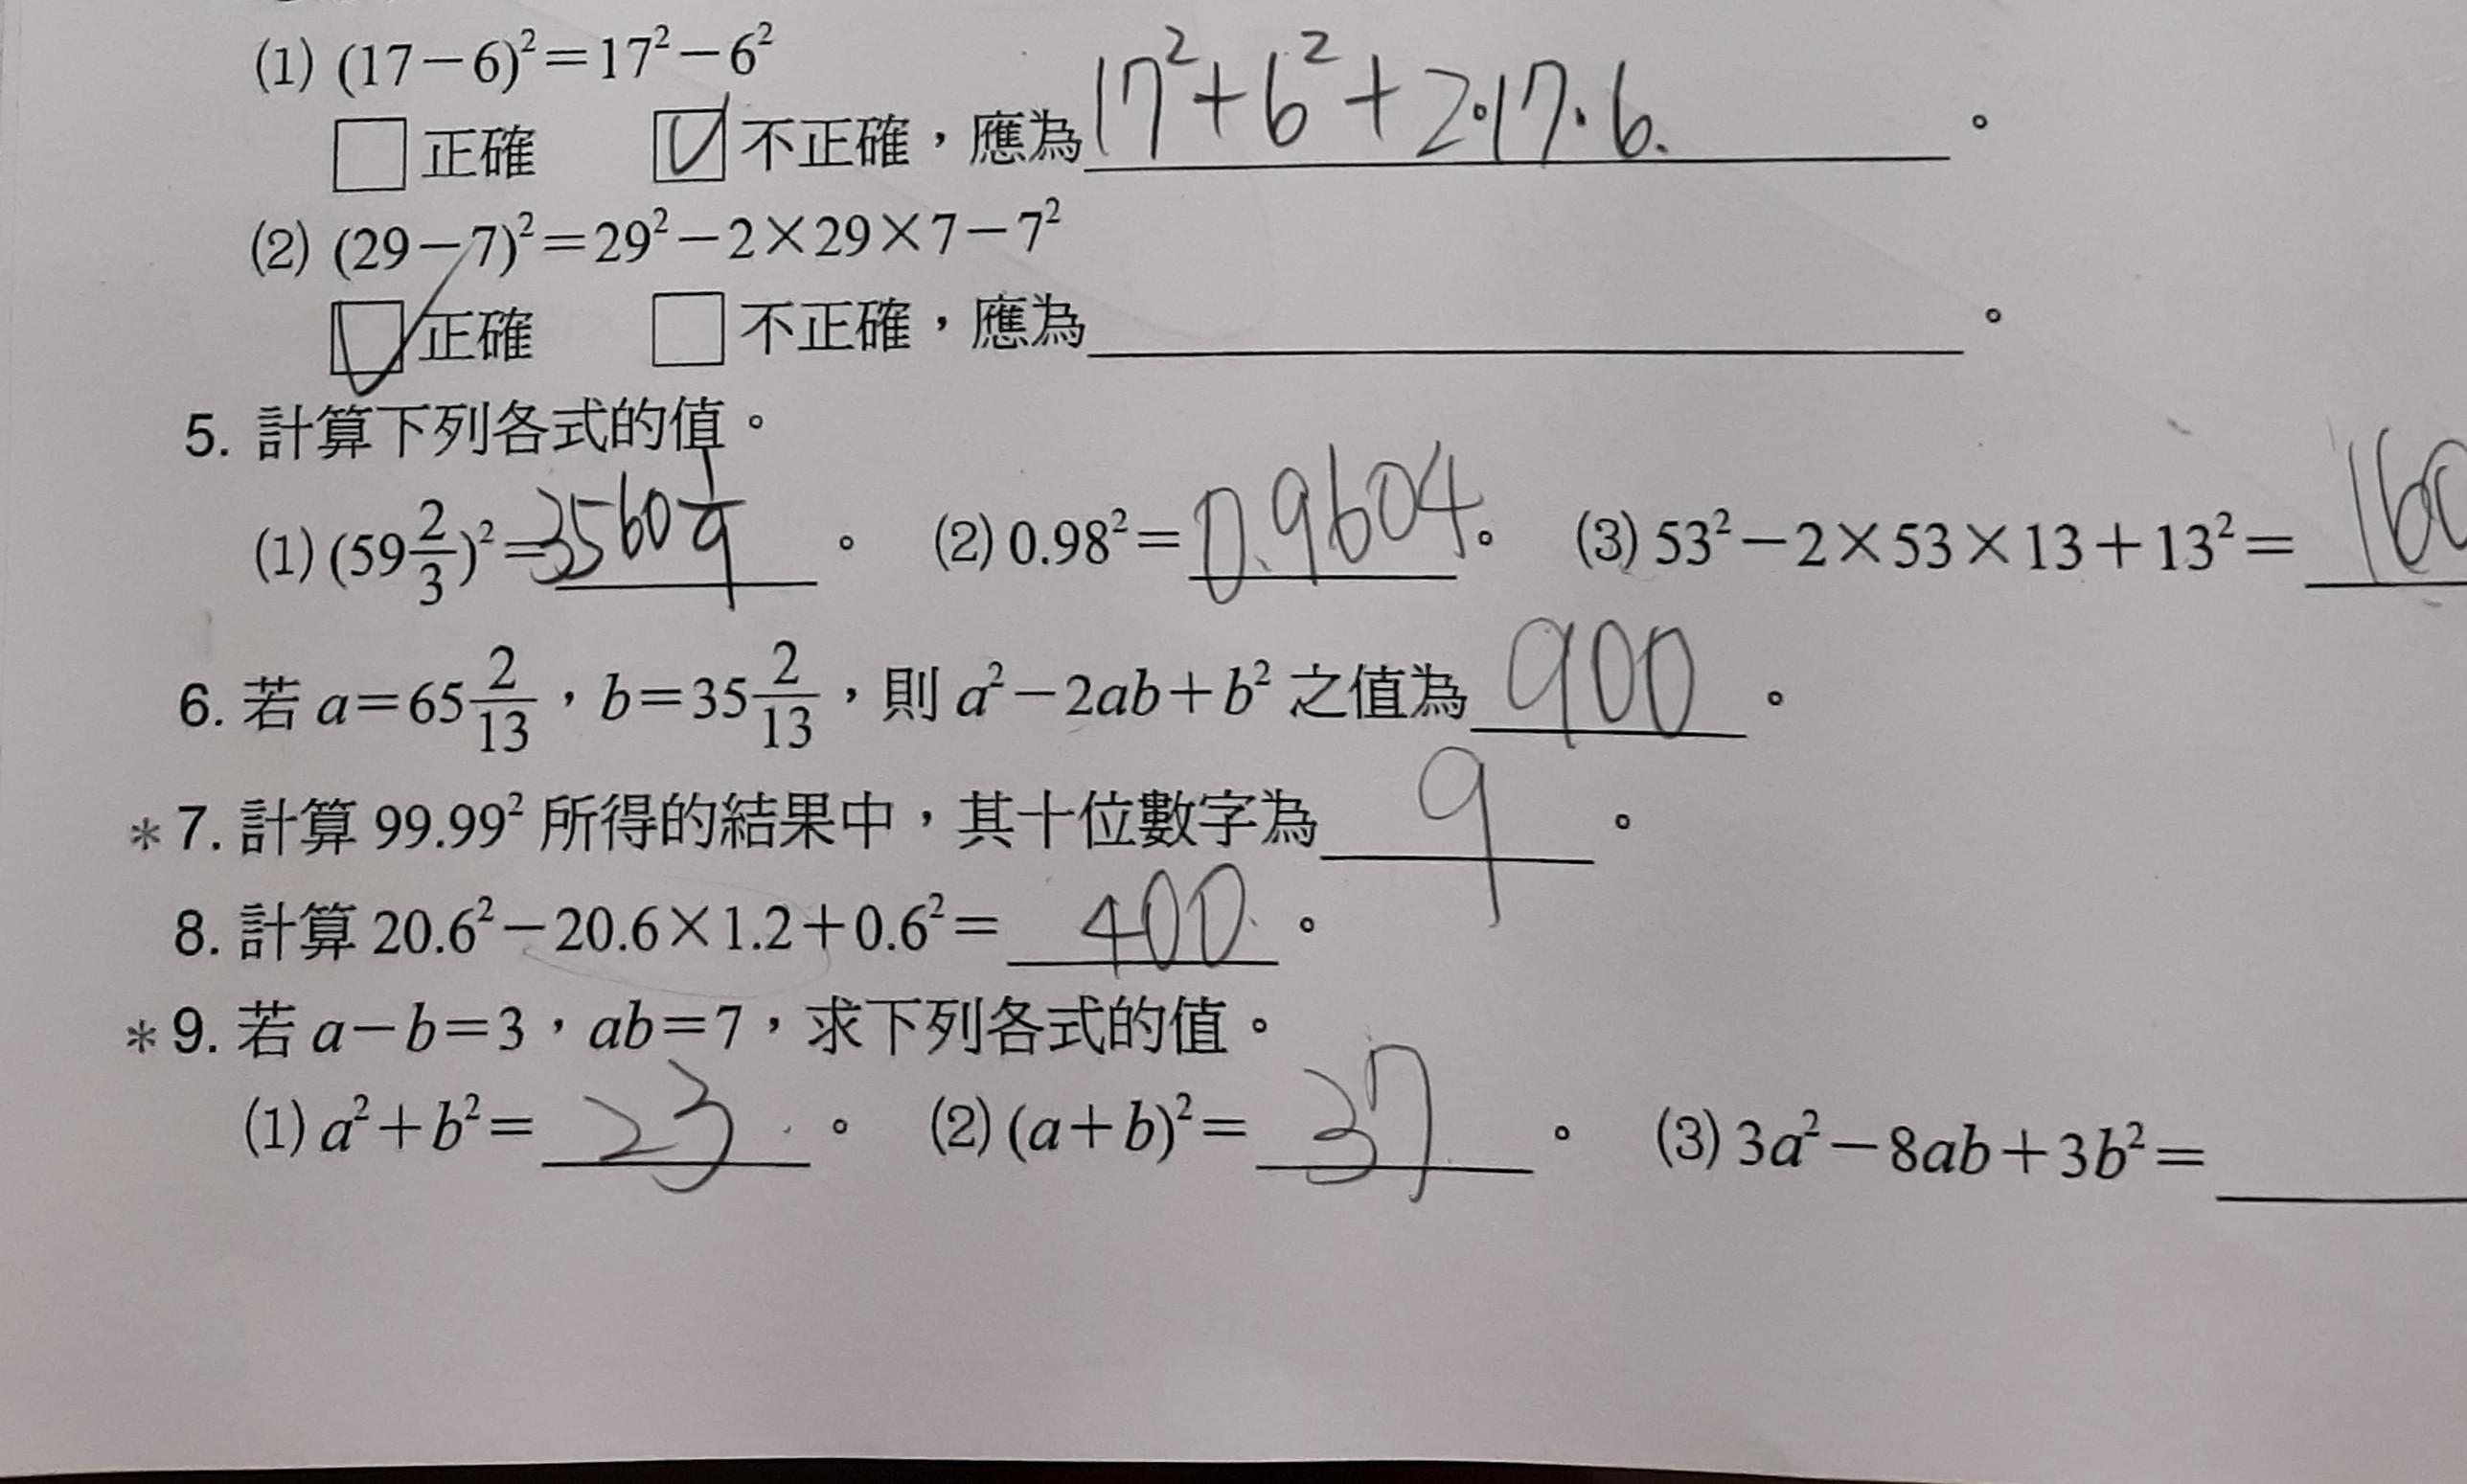 (1) (17－6)²＝17²－6²
□ 正確 ☑ 不正確，應為 17²+6²+2·17·6. 。
(2) (29－7)²＝29²－2×29×7－7²
☑ 正確 □ 不正確，應為 。
5. 計算下列各式的值。
(1) (59 2/3)²＝3560 1/9 。 (2) 0.98²＝0.9604 。 (3) 53²－2×53×13＋13²＝160
6. 若 a＝65 2/13，b＝35 2/13，則 a²－2ab＋b² 之值為 900 。
＊7. 計算 99.99² 所得的結果中，其十位數字為 9 。
8. 計算 20.6²－20.6×1.2＋0.6²＝ 400 。
＊9. 若 a－b＝3，ab＝7，求下列各式的值。
(1) a²＋b²＝ 23 。 (2) (a＋b)²＝ 37 。 (3) 3a²－8ab＋3b²＝